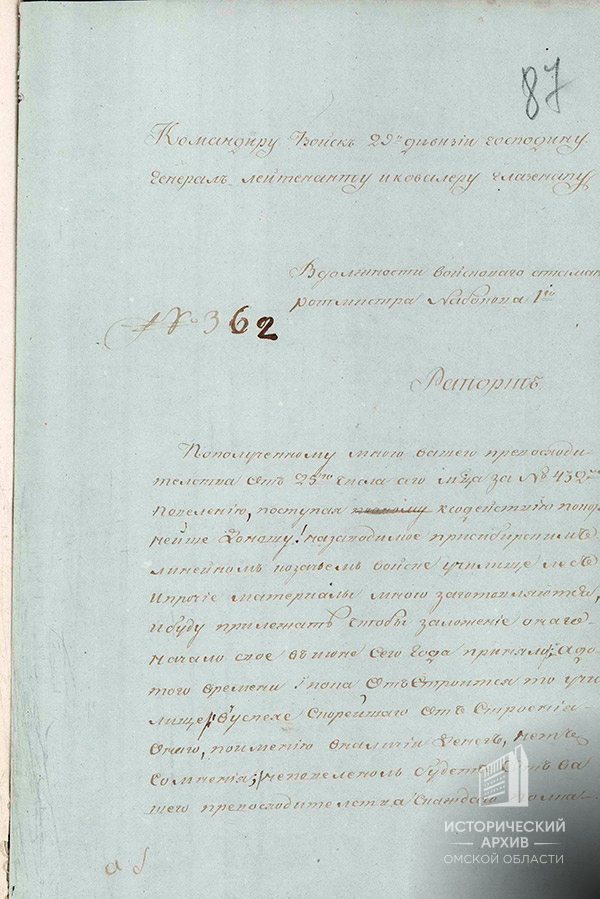 87
Командиру Войскъ 29й дивизiи господину
генералъ лейтенанту и ковалеру Глазенапу
В должности войсковаго атаман
ротмистра Набокова 1го
№ 362
Рапортъ
Пополученному мною вашего превосходи-
телства Отъ 25го числа сего мца за № 432м
Повелению, поступая ксодействiю покор
нейше Доношу! назаводимое присибирскимъ
линейномъ козачьемъ войске училище лесъ
Ипрочiе матерiалы мною заготовляются,
Ибуду прилежать чтобы заложенiе онаго-
начало свое въ июне Сего года приняло; Адо
того времени пока Отъ Строится то учи
лище, Оуспехе Скорейшаго Отъ Строенiя-
Онаго, поимению Аналичiи Денегъ, нетъ
Сомненiя; неповелено ль будетъ Отъ ва
шего превосходителства
а б
ИСТОРИЧЕСКИЙ
АРХИВ
ОМСКОЙ ОБЛАСТИ